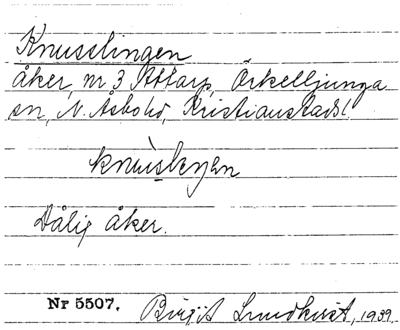 Knusslingen
åker, nr 3 Attarp, Örkelljunga
sn, N. Åsbo hd, Kristianstads l.
Dålig åker.
Nr 5507. Birgit Lundkvist, 1939.